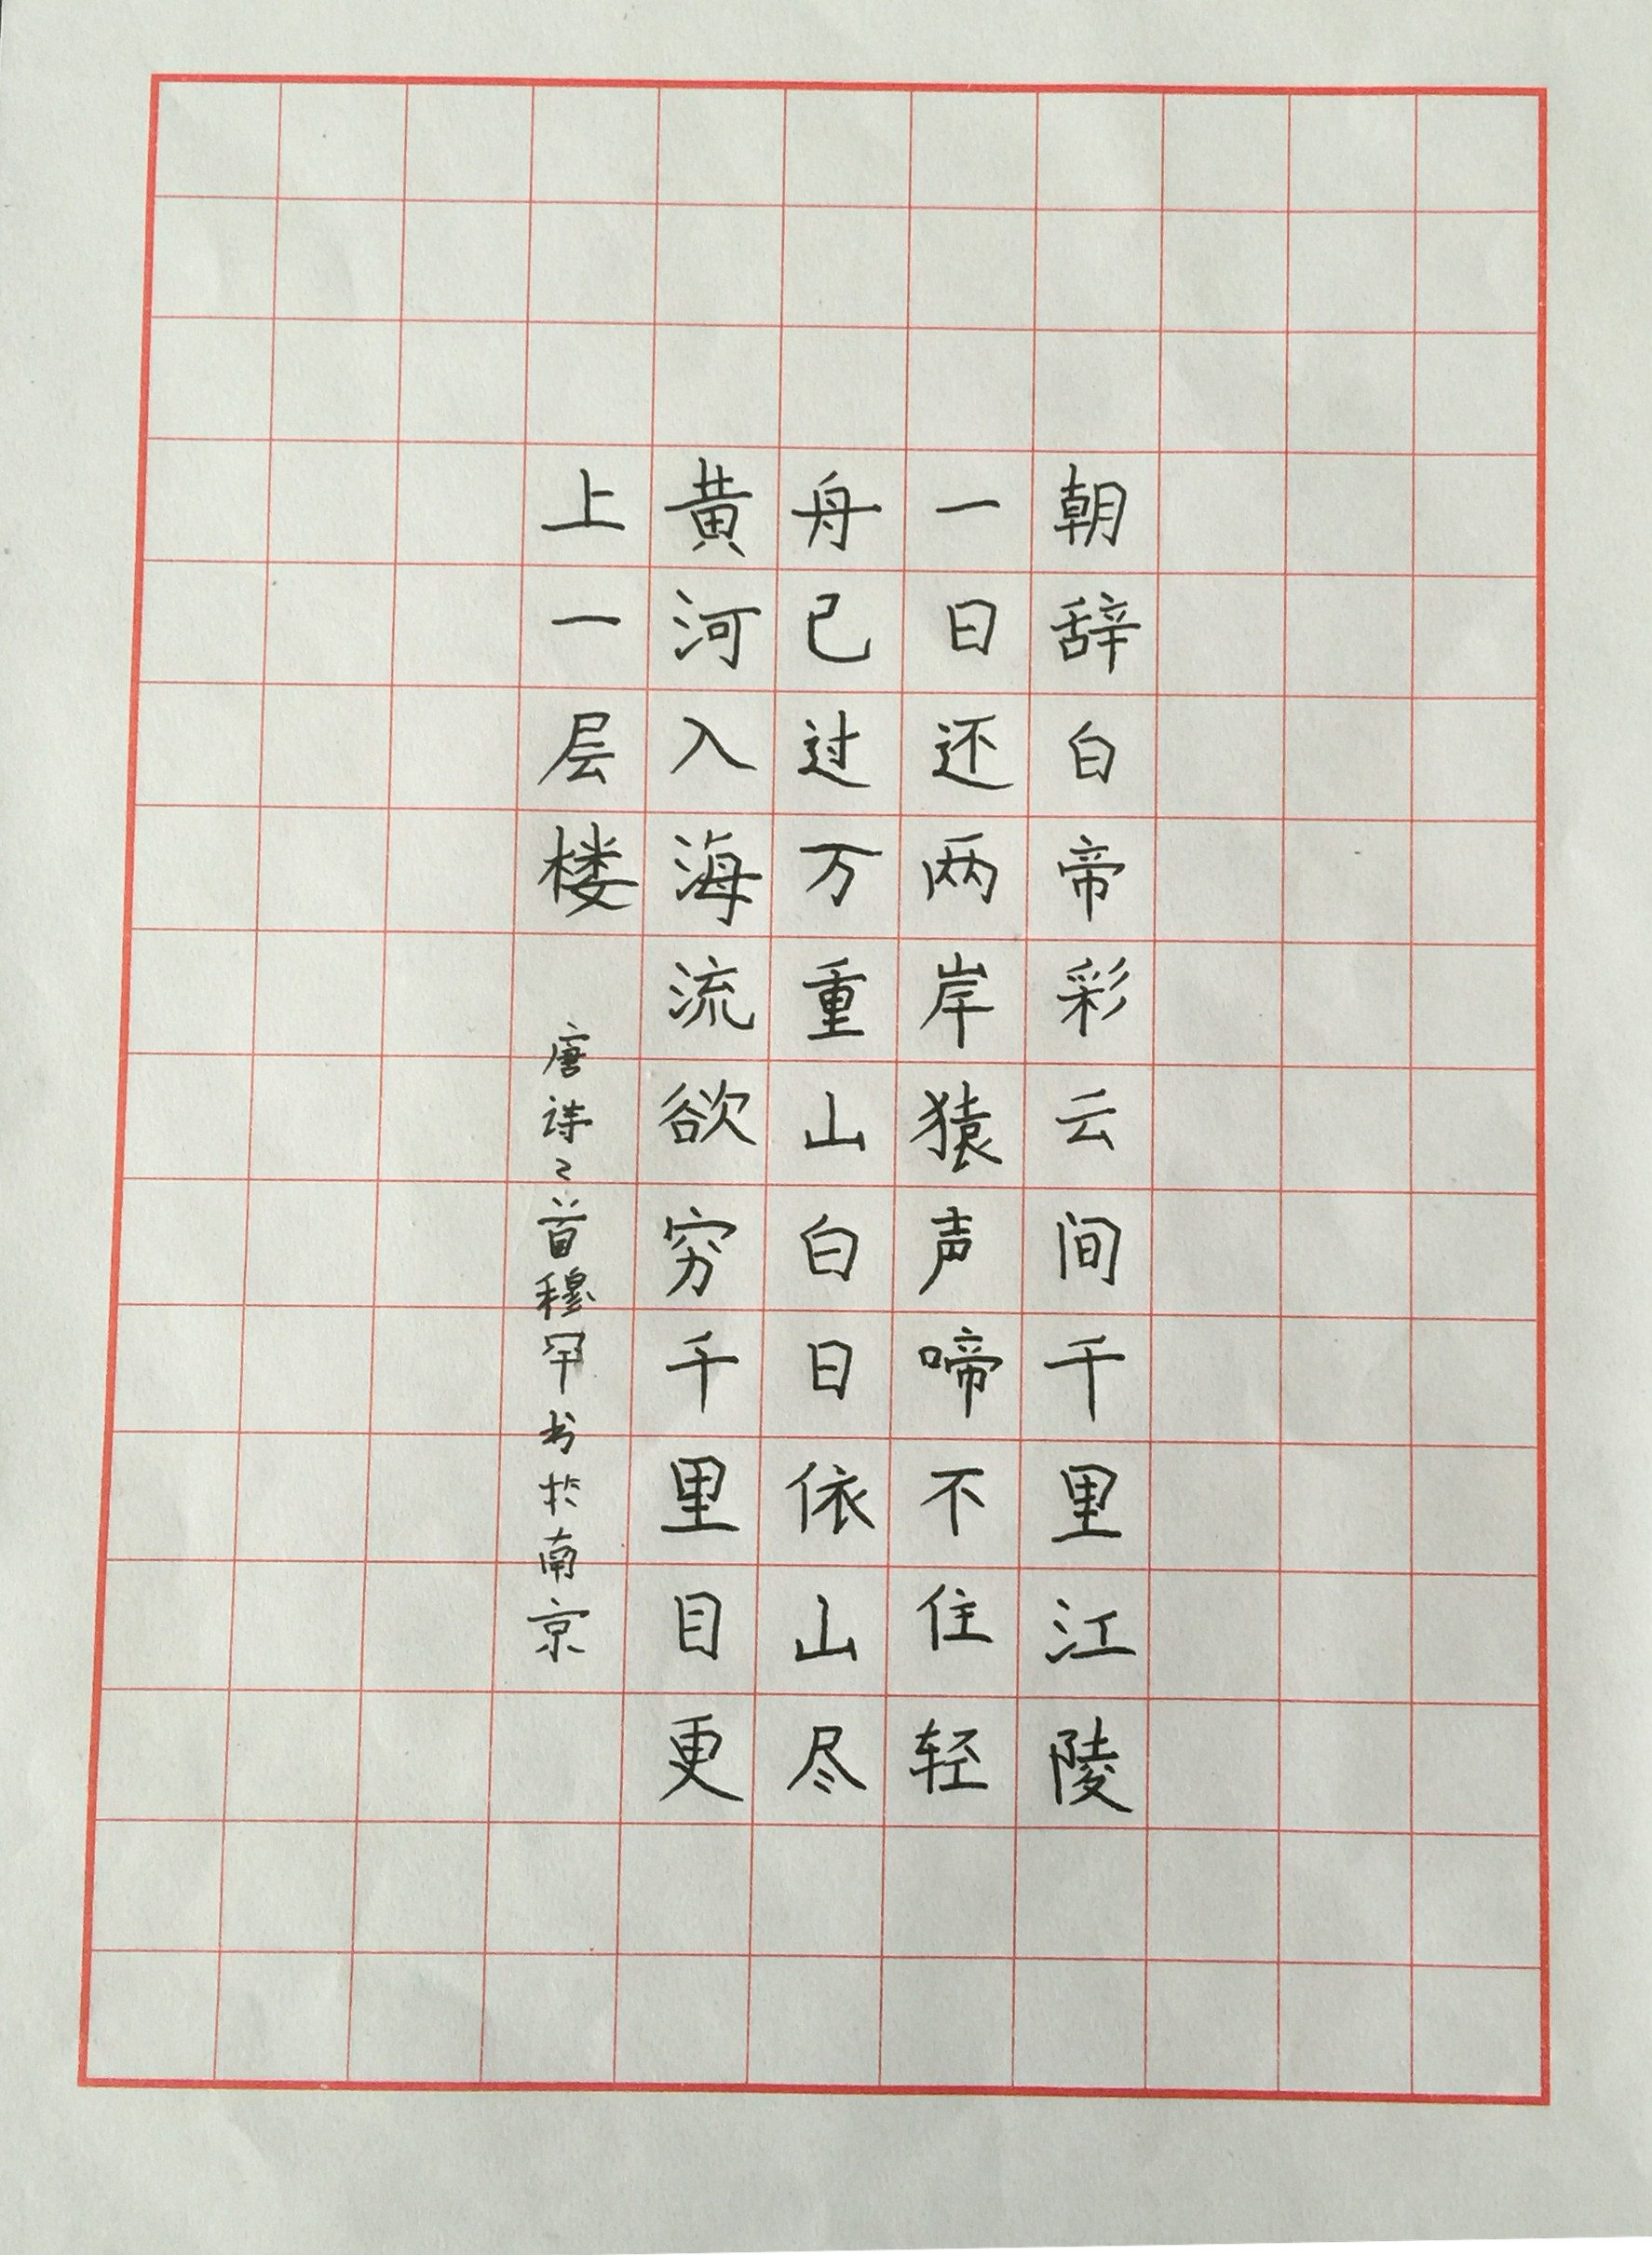 朝辞白帝彩云间千里江陵
一日还两岸猿声啼不住轻
舟已过万重山白日依山尽
黄河入海流欲穷千里目更
上一层楼
唐诗二首穆罕书於南京